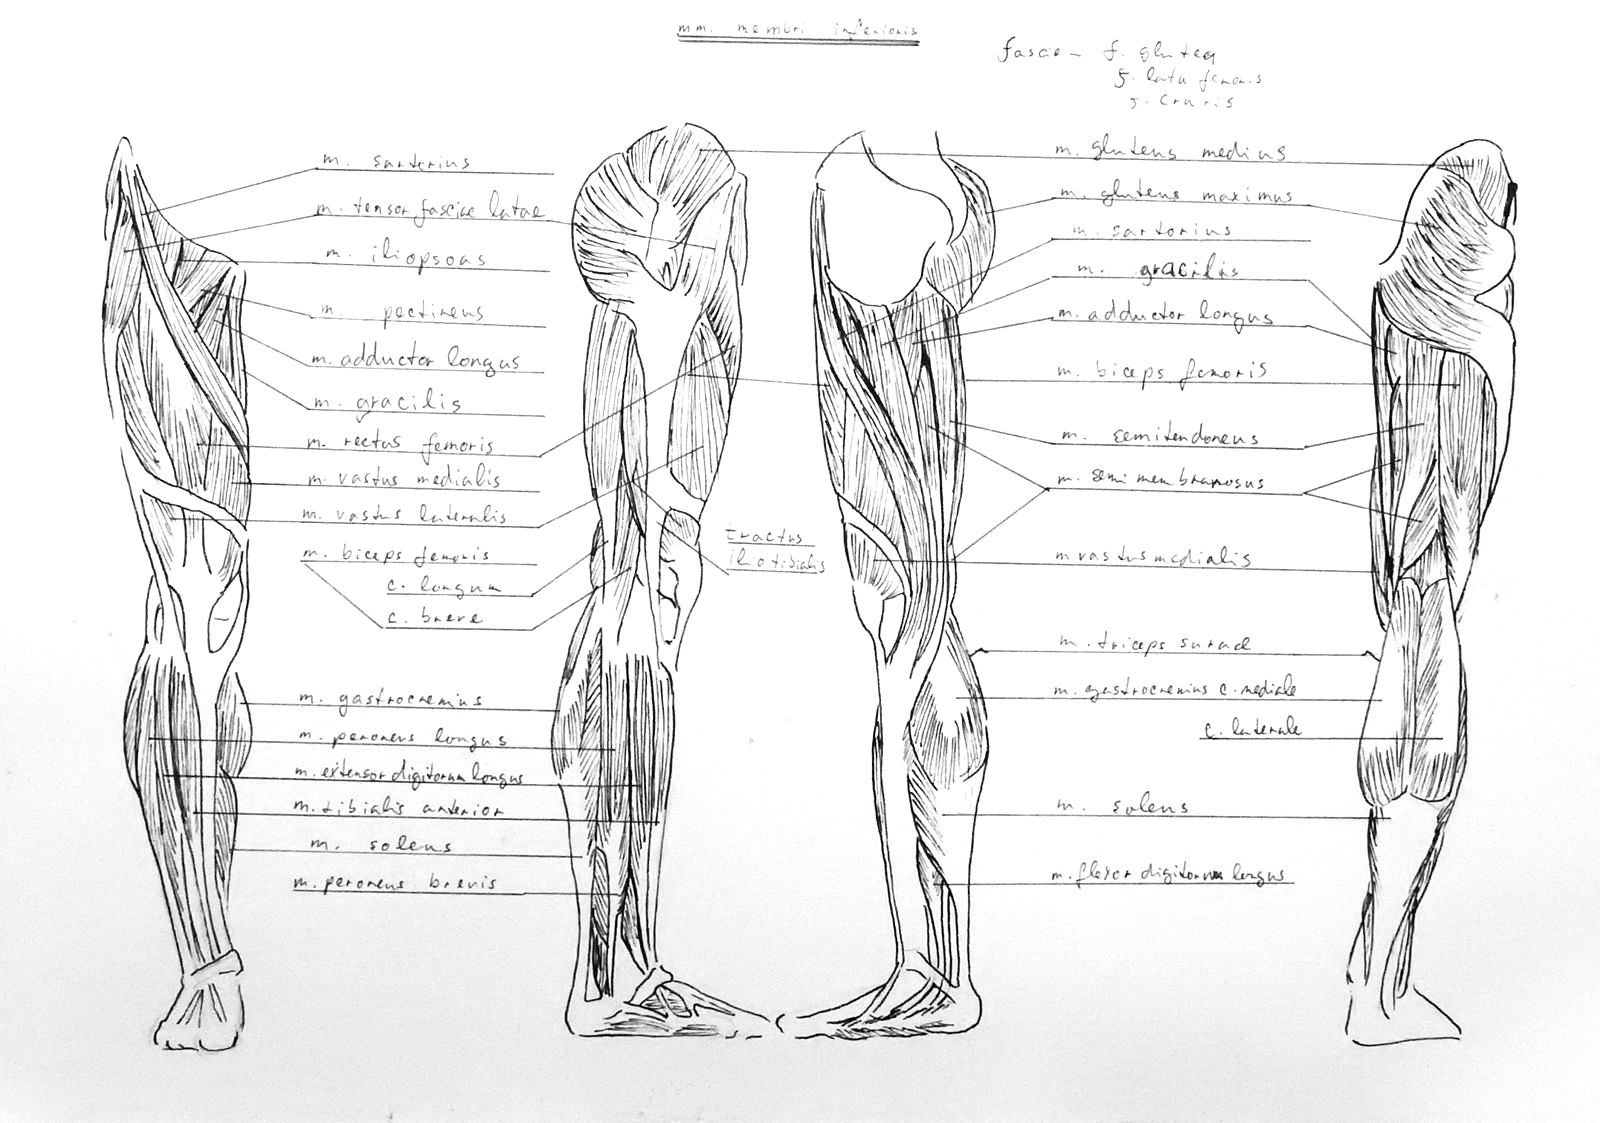 mm. membri inferioris
fascie - f. glutea
f. lata femoris
f. cruris
m. sartorius
m. tensor fasciae latae
m. iliopsoas
m. pectineus
m. adductor longus
m. gracilis
m. rectus femoris
m. vastus medialis
m. vastus lateralis
m. biceps femoris
c. longum
c. breve
m. gastrocnemius
m. peroneus longus
m. extensor digitorum longus
m. tibialis anterior
m. soleus
m. peroneus brevis
tractus
iliotibialis
m. gluteus medius
m. gluteus maximus
m. sartorius
m. gracilis
m. adductor longus
m. biceps femoris
m. semitendoneus
m. semimembranosus
m vastus medialis
m. triceps surae
m. gastrocnemius c. mediale
c. laterale
m. soleus
m. flexor digitorum longus